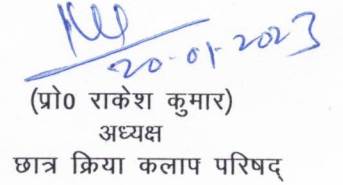 20-01-2023
(प्रो0 राकेश कुमार)
अध्यक्ष
छात्र क्रिया कलाप परिषद्